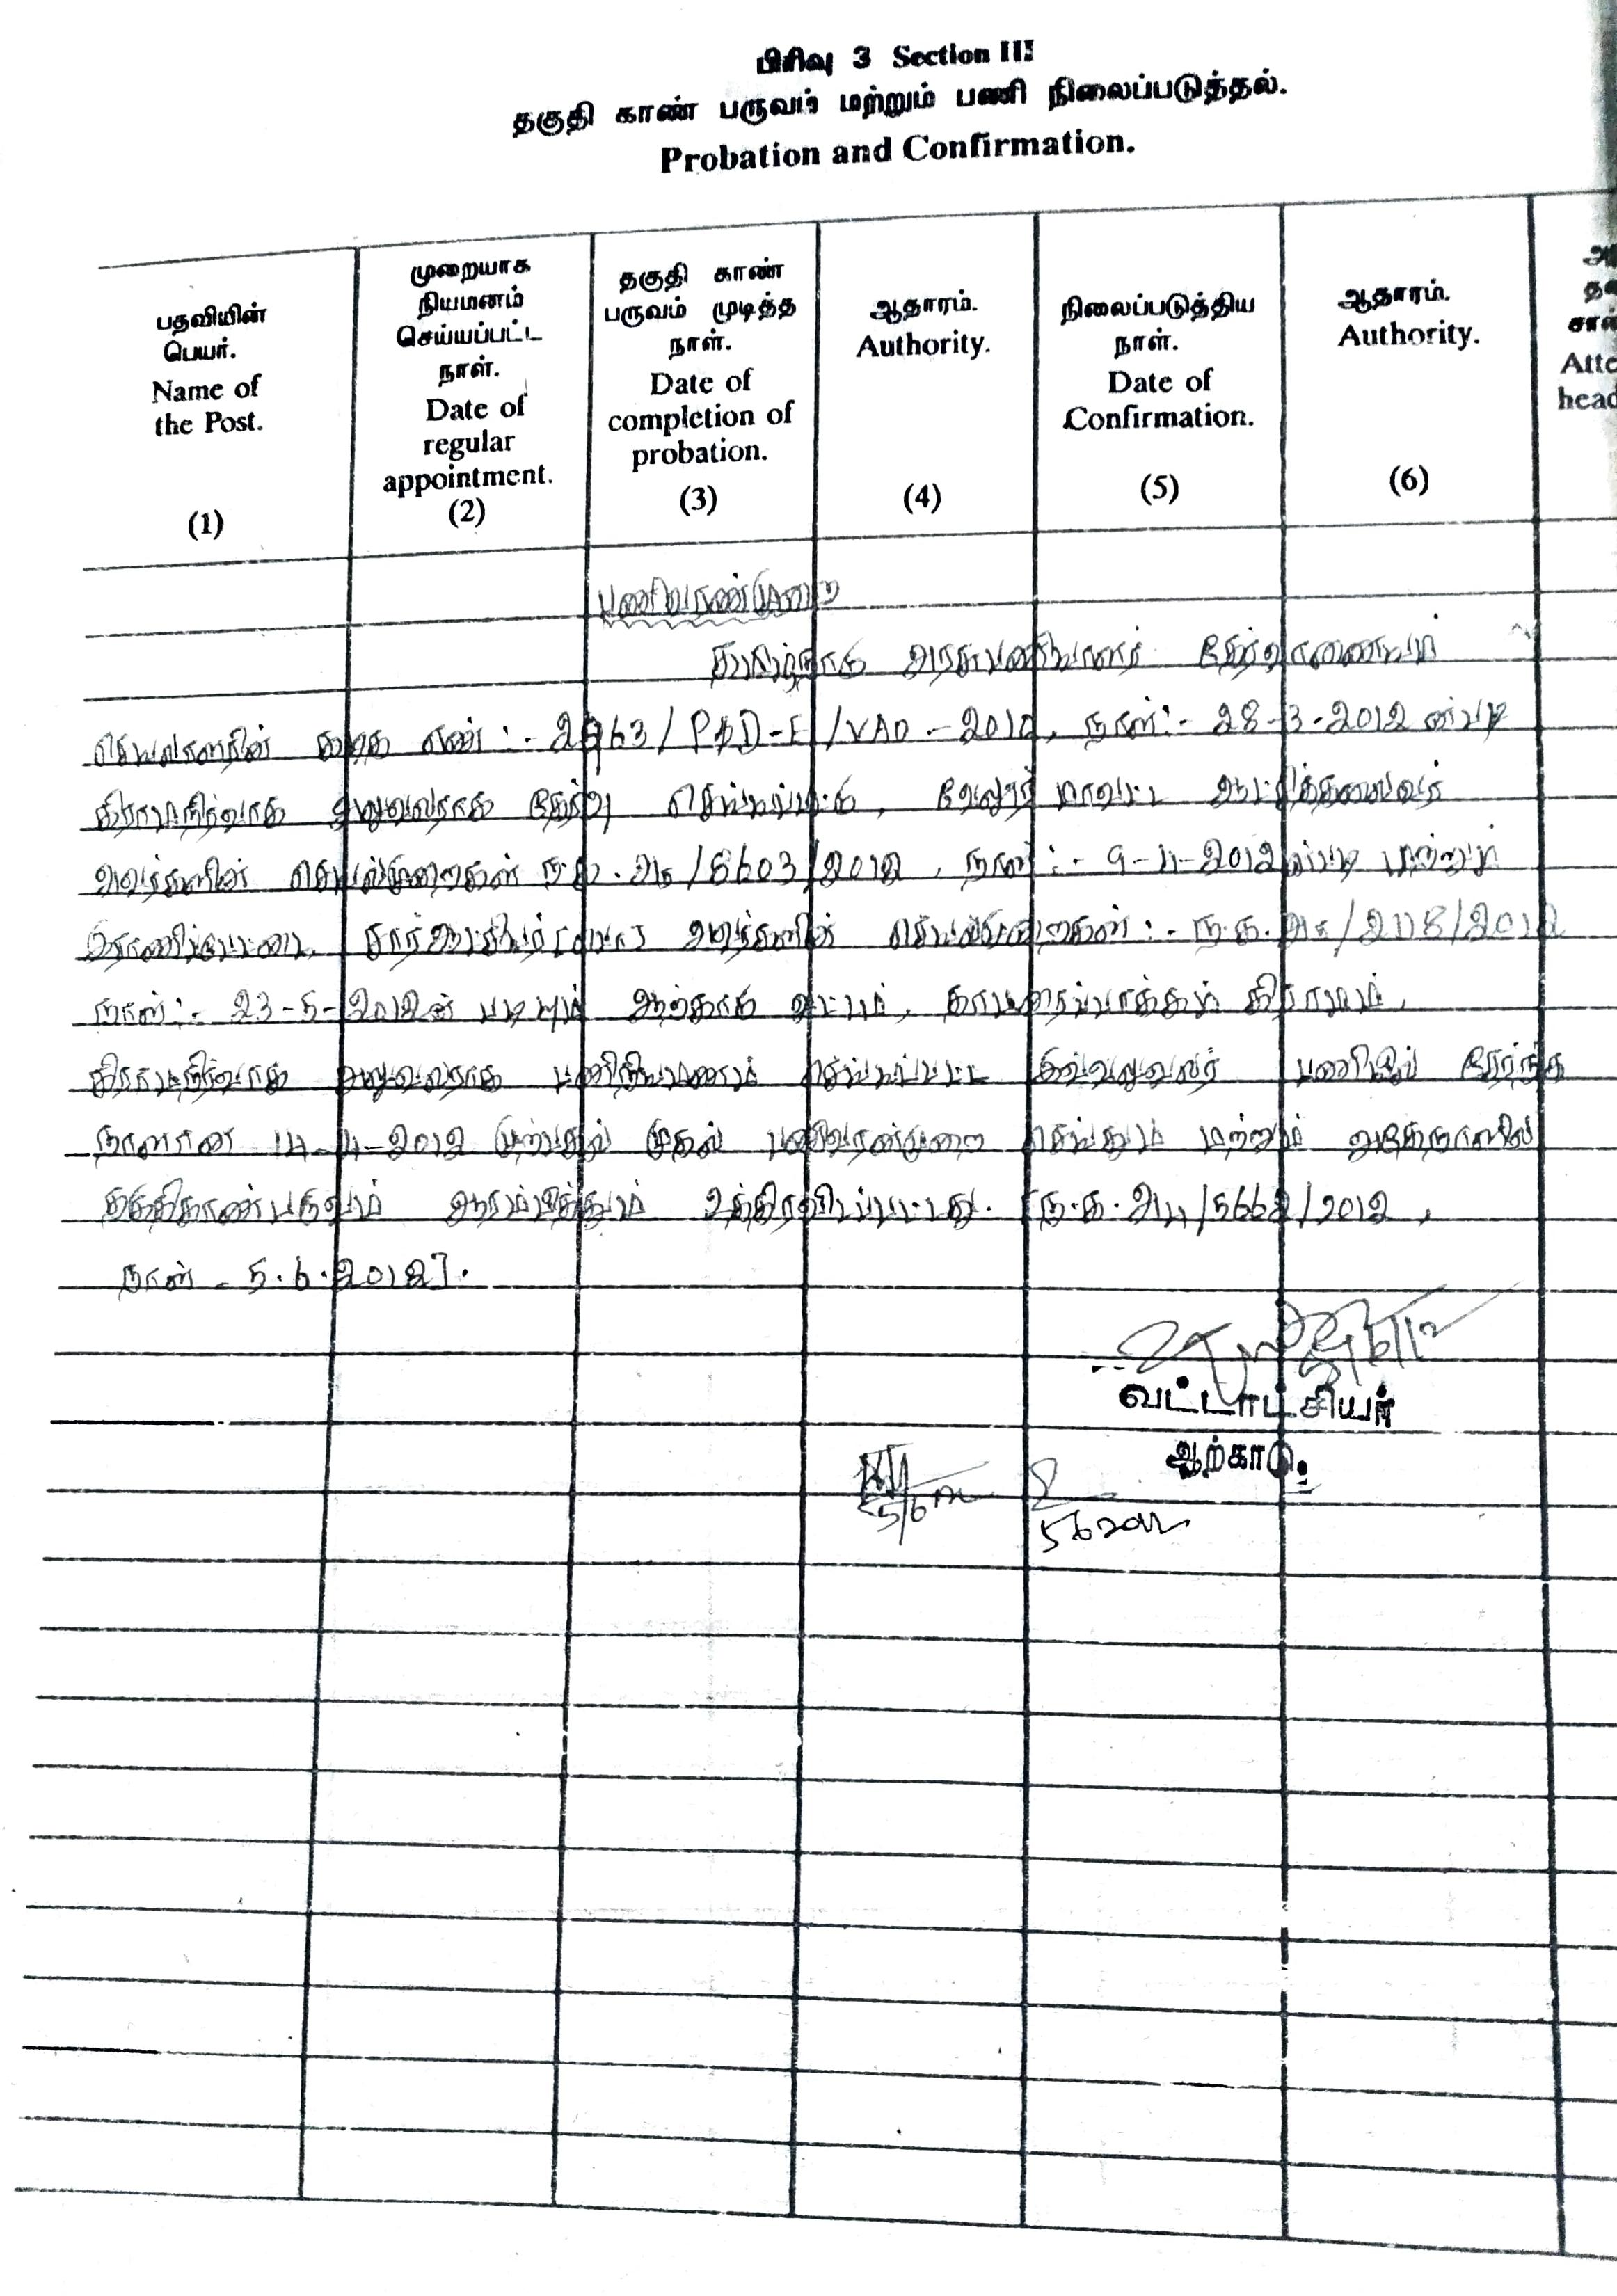 பிரிவு 3 Section III
தகுதி காண் பருவம் மற்றும் பணி நிலைப்படுத்தல்.
Probation and Confirmation.
பதவியின் பெயர். Name of the Post. (1)
முறையாக நியமனம் செய்யப்பட்ட நாள். Date of regular appointment. (2)
தகுதி காண் பருவம் முடித்த நாள். Date of completion of probation. (3)
ஆதாரம். Authority. (4)
நிலைப்படுத்திய நாள். Date of Confirmation. (5)
ஆதாரம். Authority. (6)
Atte
head
பணிவரண்முறை
தமிழ்நாடு அரசுபணியாளர் தேர்வாணையம்
செயலாளரின் கடித எண் :- 2963/PSD-E/VAO-2010, நாள்:- 28-3-2012 ன்படி
கிராமநிர்வாக அலுவலராக தேர்வு செய்யப்பட்டு, வேலூர் மாவட்ட ஆட்சித்தலைவர்
அவர்களின் செயல்முறைகள் ந.க. /6603/2012, நாள் :- 9-4-2012ன்படி மற்றும்
இராணிப்பேட்டை, சார்ஆட்சியர் அவர்களின் செயல்முறைகள் :- ந.க. /2118/2012
நாள்:- 23-5-2012ன் படியும் ஆற்காடு வட்டம், கிராமம்,
கிராமநிர்வாக அலுவலராக பணிநியமணம் செய்யப்பட்ட இவ்வலுவலர் பணியில் சேர்ந்த
நாளான 14-4-2012 முற்பகல் முதல் பணிவரண்முறை செய்தும் மற்றும் அதேநாளில்
தகுதிகாண்பருவம் ஆரம்பித்தும் உத்திரவிடப்பட்டது. [ந.க.அ4/5662/2012,
நாள் - 5.6.2012].
5/6/12
வட்டாட்சியர்
ஆற்காடு.
5/6/12
562012